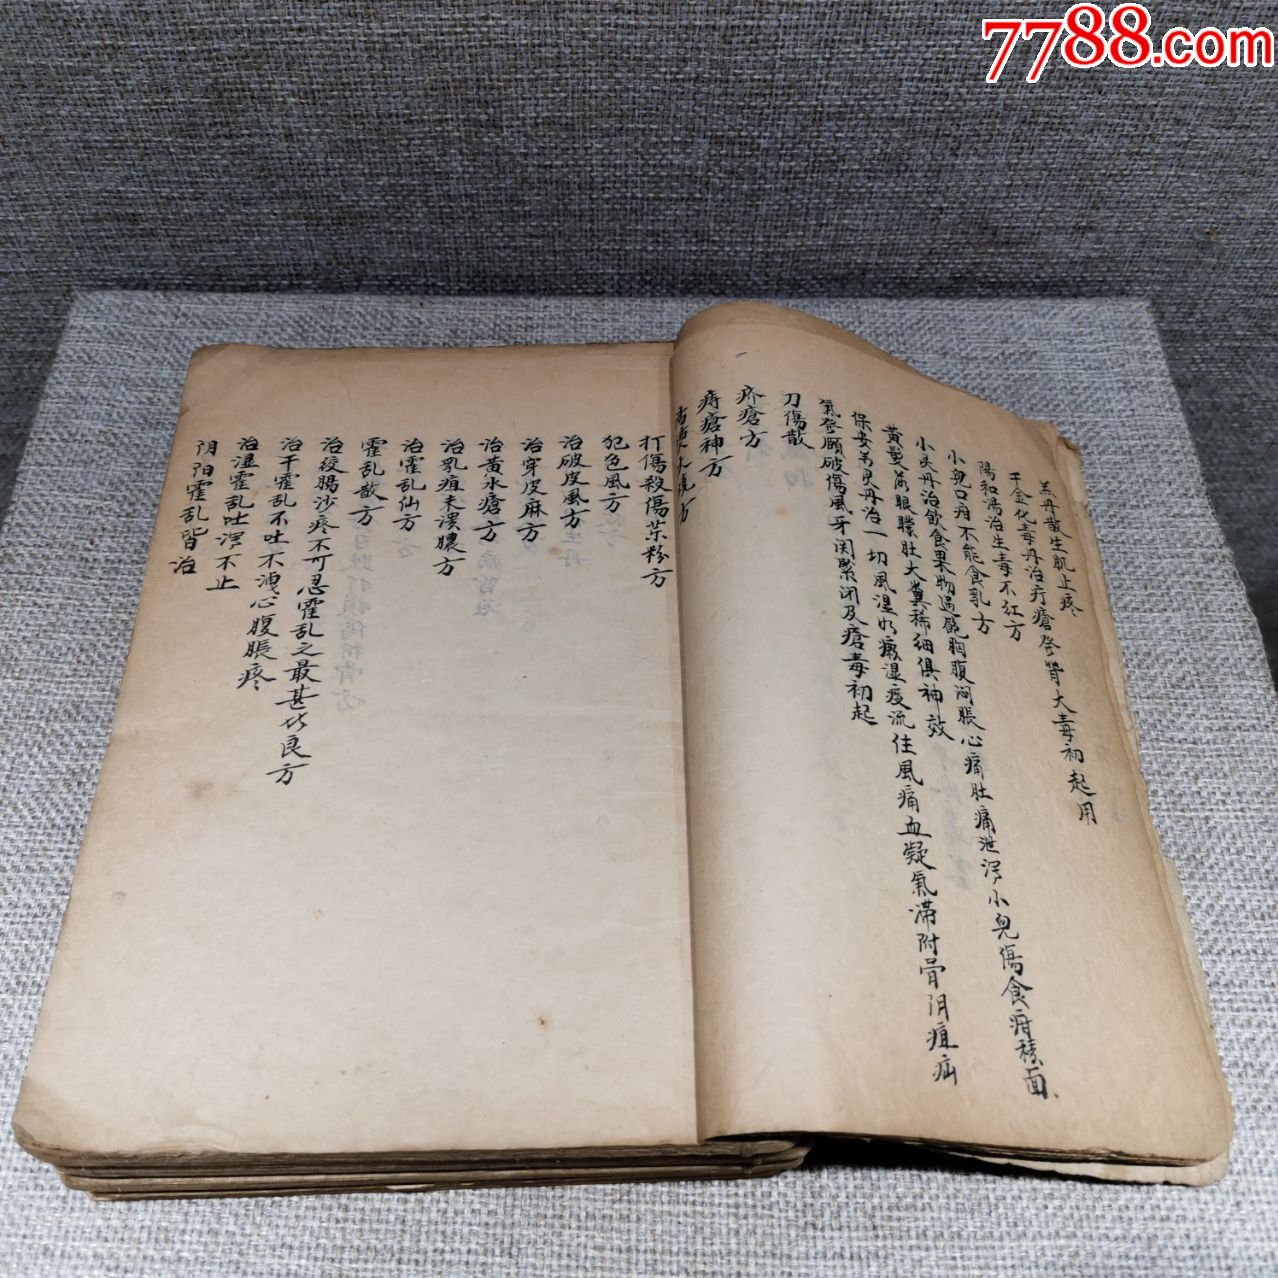 7788.com
黑丹散生肌止疼
千金化毒丹治疔瘡發背大毒初起用
陽和湯治生毒不紅方
小兒口疳不能食乳方
小灵丹治飲食果物過飽胸腹闷脹心痛肚痛泄泻小兒傷食疳積面
黄曼 眼矇肚大糞稀细俱神效
保安万灵丹治一切风湿 湿痰流住風痛血凝氣滞附骨阴疽疝
氣發頤破傷風牙関緊闭及瘡毒初起
刀傷散
疥瘡方
痔瘡神方
湯 火燒方
打傷殺傷茶粉方
犯色風方
治破皮風方
治穿皮麻方
治黄水瘡方
治乳疽未潰膿方
治霍乱仙方
霍乱散方
治絞腸沙疼不可忍霍乱之最甚此良方
治干霍乱不吐不洩心腹脹疼
治湿霍乱吐泻不止
阴阳霍乱皆治